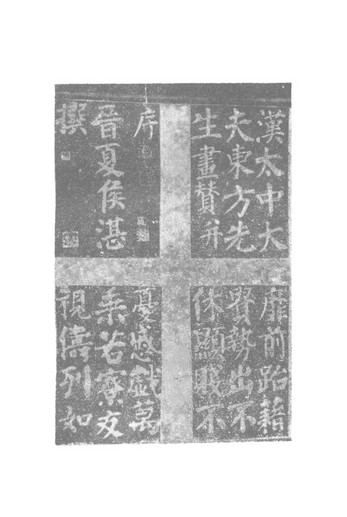 漢太中大
夫東方先
生畫贊并
序
晉夏侯湛
撰
靡前跆籍
貴勢出不
休顯賤不
憂慼戲萬
乘若寮友
視儔列如